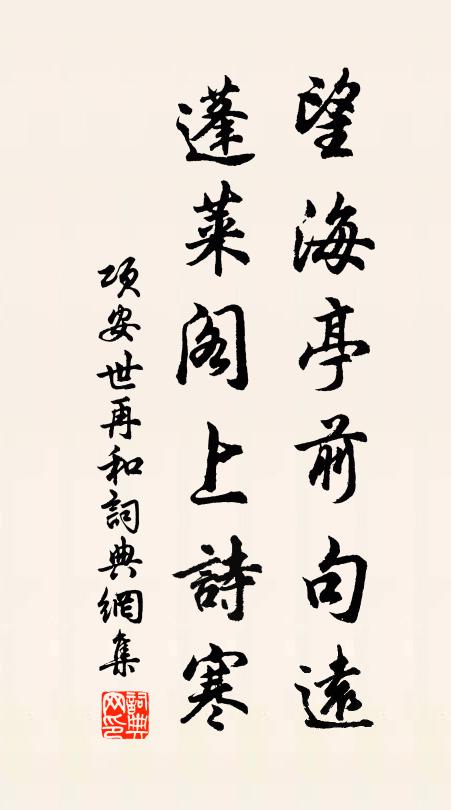 望海亭前句遠
蓬萊閣上詩寒
項安世再和詞典網集
詞典網印